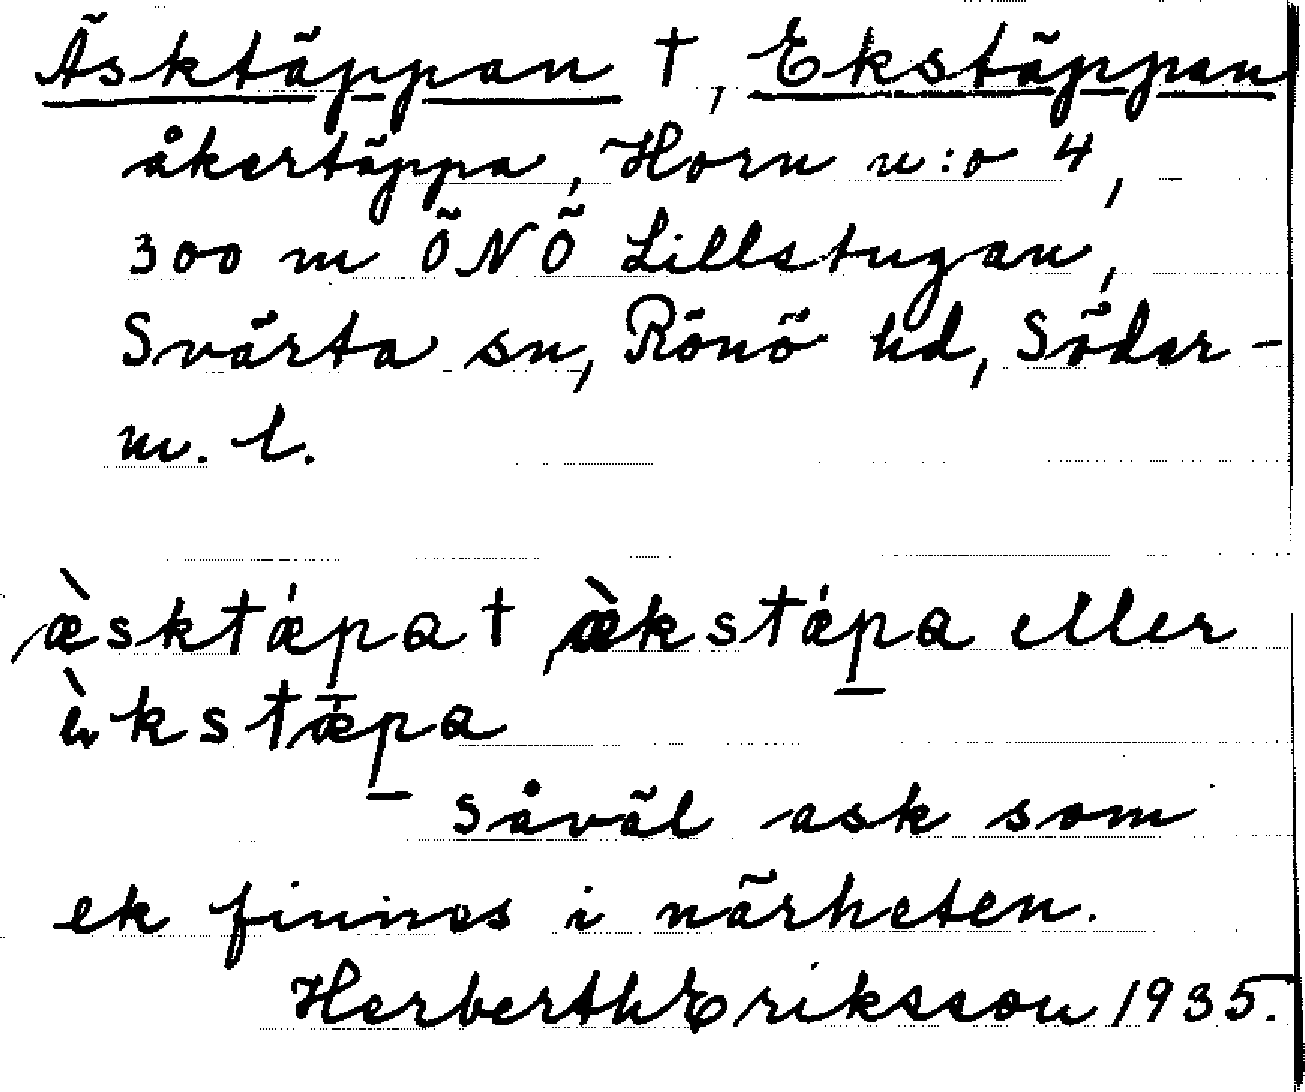 Äsktäppan †, Ekstäppan
åkertäppa, Horn n:o 4,
300 m ÖNÖ Lillstugan,
Svärta sn, Rönö hd, Söder-
m. l.
æ̀sktǽpa †, æ̀kstǽpa eller
èkstǽpa
Såväl ask som
ek finnes i närheten.
Herberth Eriksson 1935.